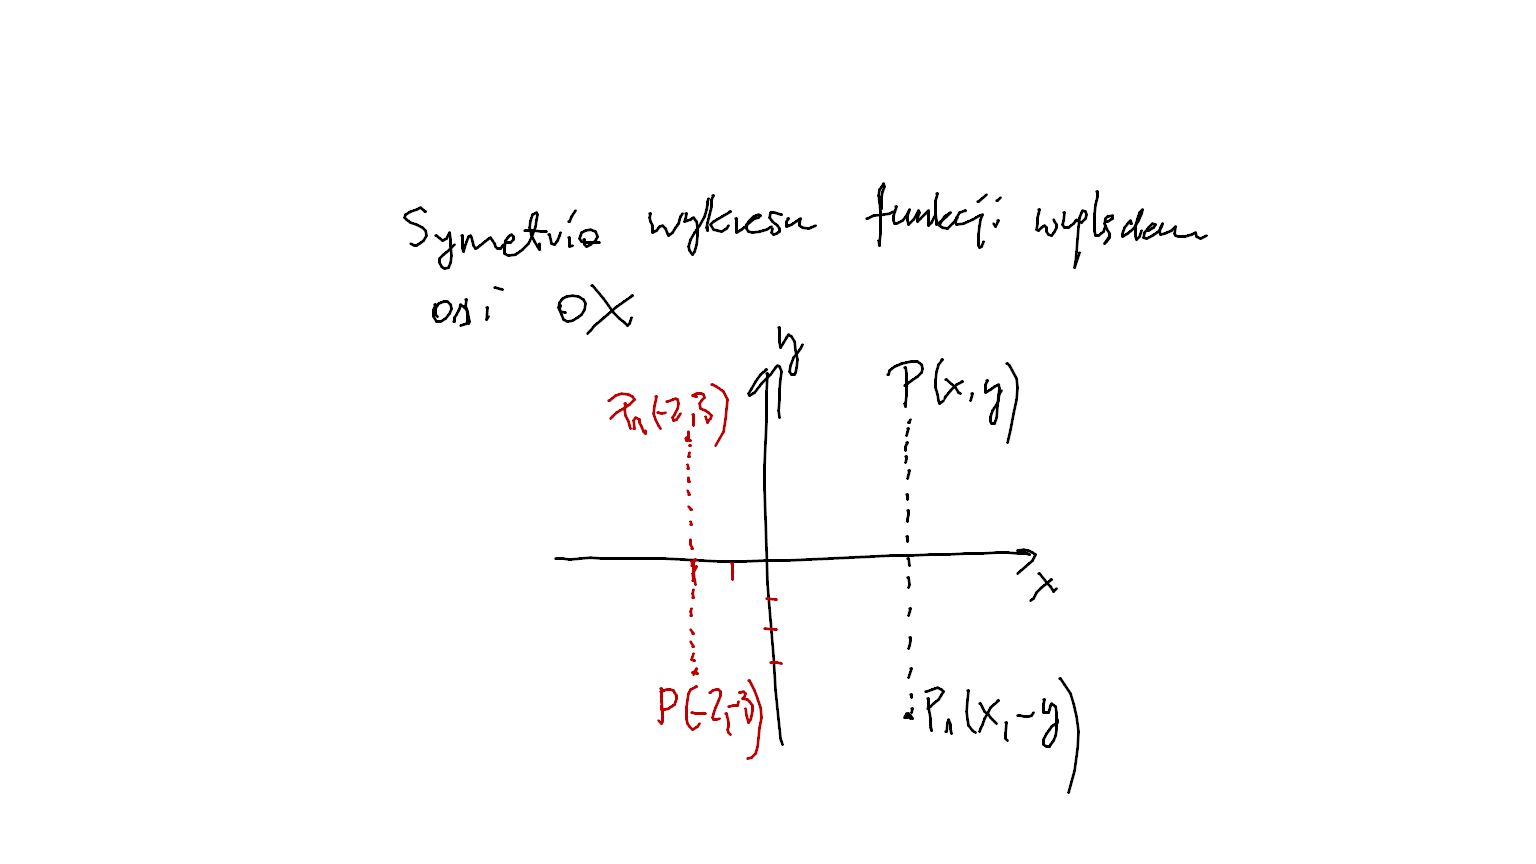 Symetria wykresu funkcji względem
osi OX
y
P(x,y)
P₁(-2,3)
x
P(-2,-3)
P₁(x,-y)